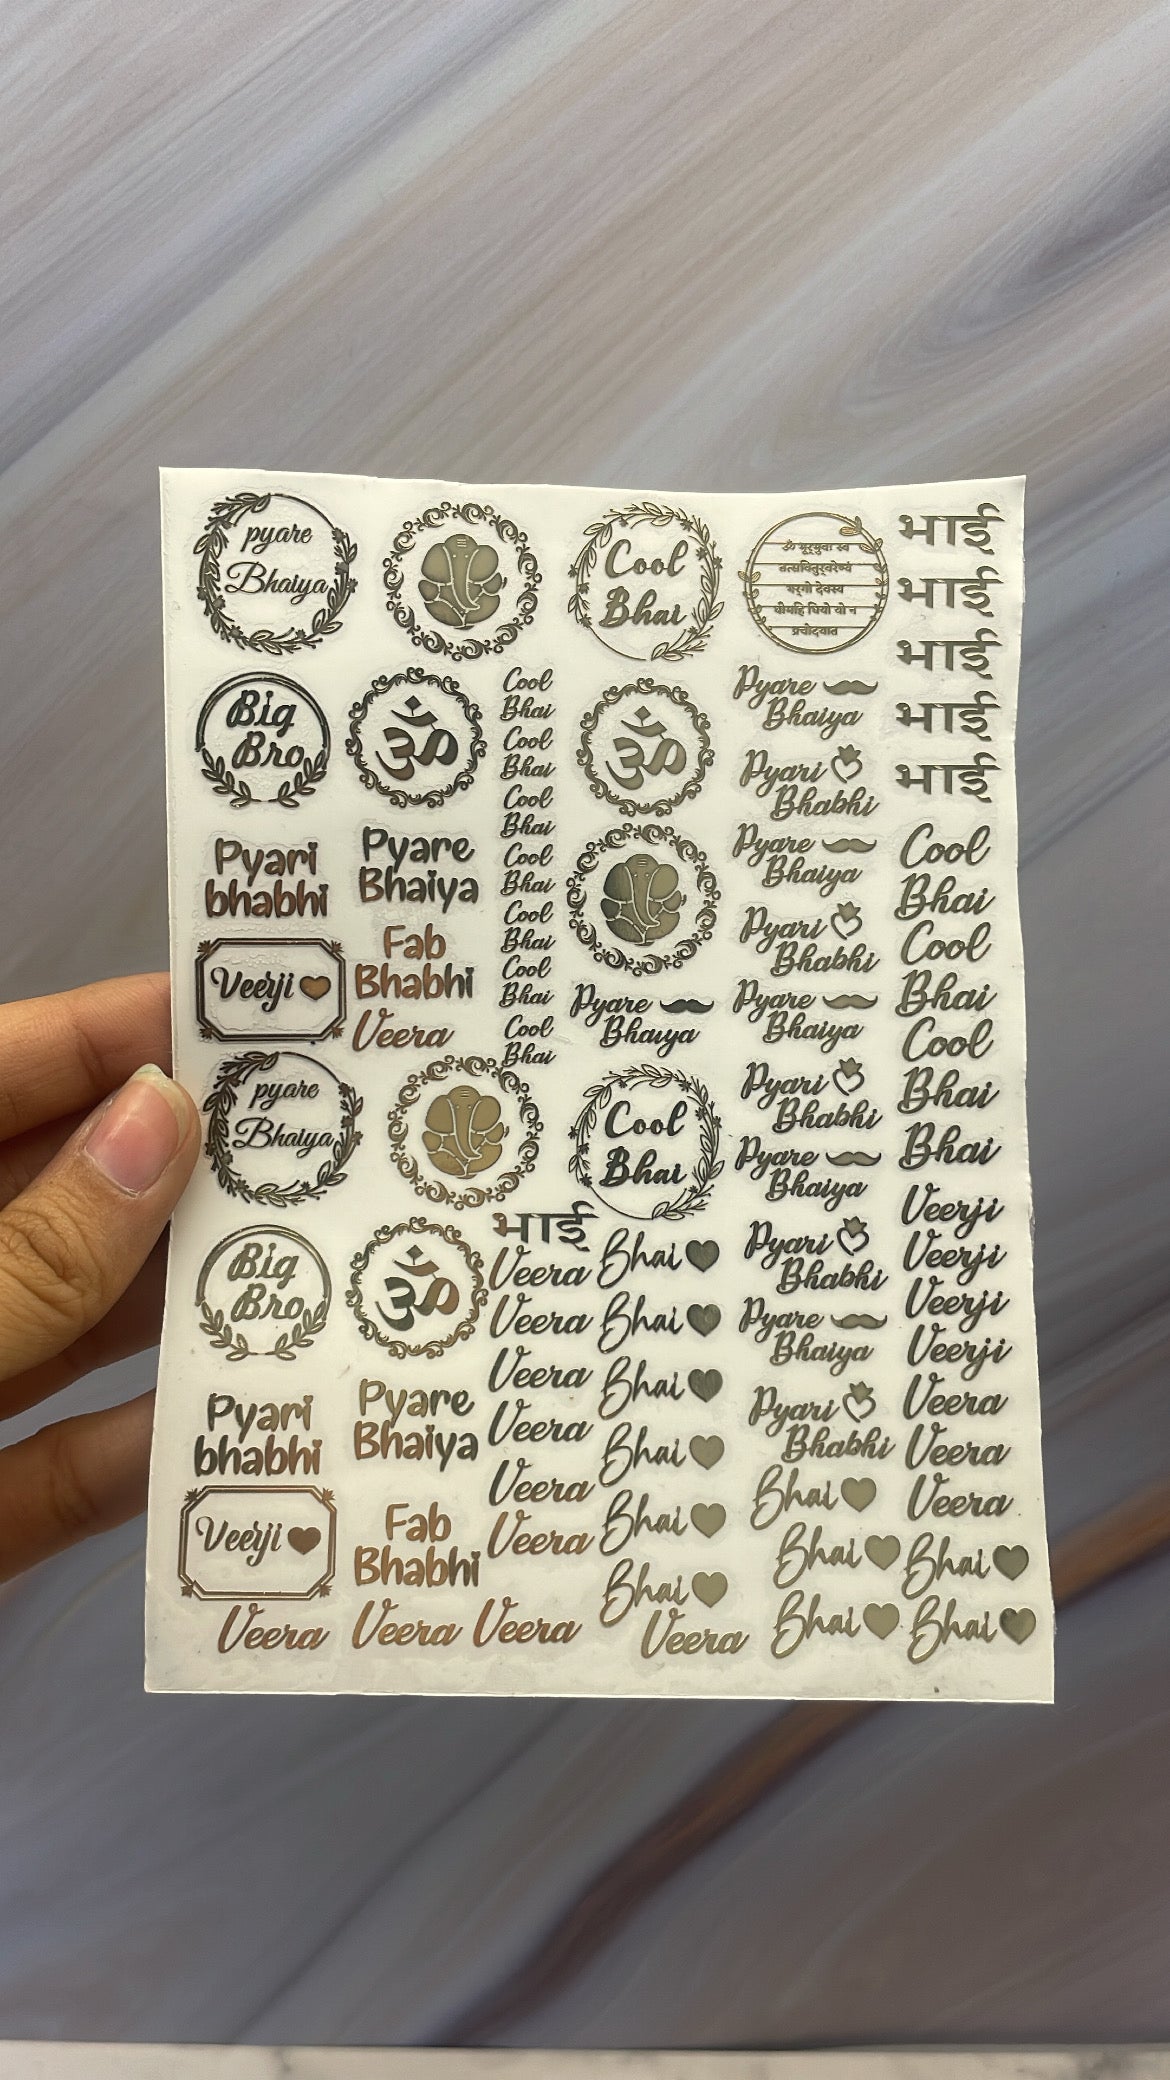 pyare
Bhaiya
Cool
Bhai
ॐ भूर्भुवः स्व
तत्सवितुर्वरेण्यं
भर्गो देवस्य
धीमहि धियो यो न
प्रचोदयात
भाई
भाई
भाई
भाई
भाई
Big
Bro
ॐ
Cool
Bhai
Cool
Bhai
Cool
Bhai
Cool
Bhai
Cool
Bhai
Cool
Bhai
Cool
Bhai
ॐ
Pyare
Bhaiya
Pyari
Bhabhi
Pyare
Bhaiya
Pyari
Bhabhi
Pyare
Bhaiya
Pyari
Bhabhi
Pyare
Bhaiya
Pyari
Bhabhi
Pyare
Bhaiya
Pyari
Bhabhi
Pyari
bhabhi
Pyare
Bhaiya
Cool
Bhai
Cool
Bhai
Cool
Bhai
Bhai
Veerji
Fab
Bhabhi
Veera
Pyare
Bhaiya
pyare
Bhaiya
Cool
Bhai
Veerji
Veerji
Veerji
Veerji
Veera
Veera
Veera
Big
Bro
ॐ
भाई
Veera
Veera
Veera
Veera
Veera
Veera
Bhai
Bhai
Bhai
Bhai
Bhai
Bhai
Pyari
bhabhi
Pyare
Bhaiya
Veerji
Fab
Bhabhi
Bhai
Bhai
Bhai
Veera
Veera
Veera
Veera
Bhai
Bhai